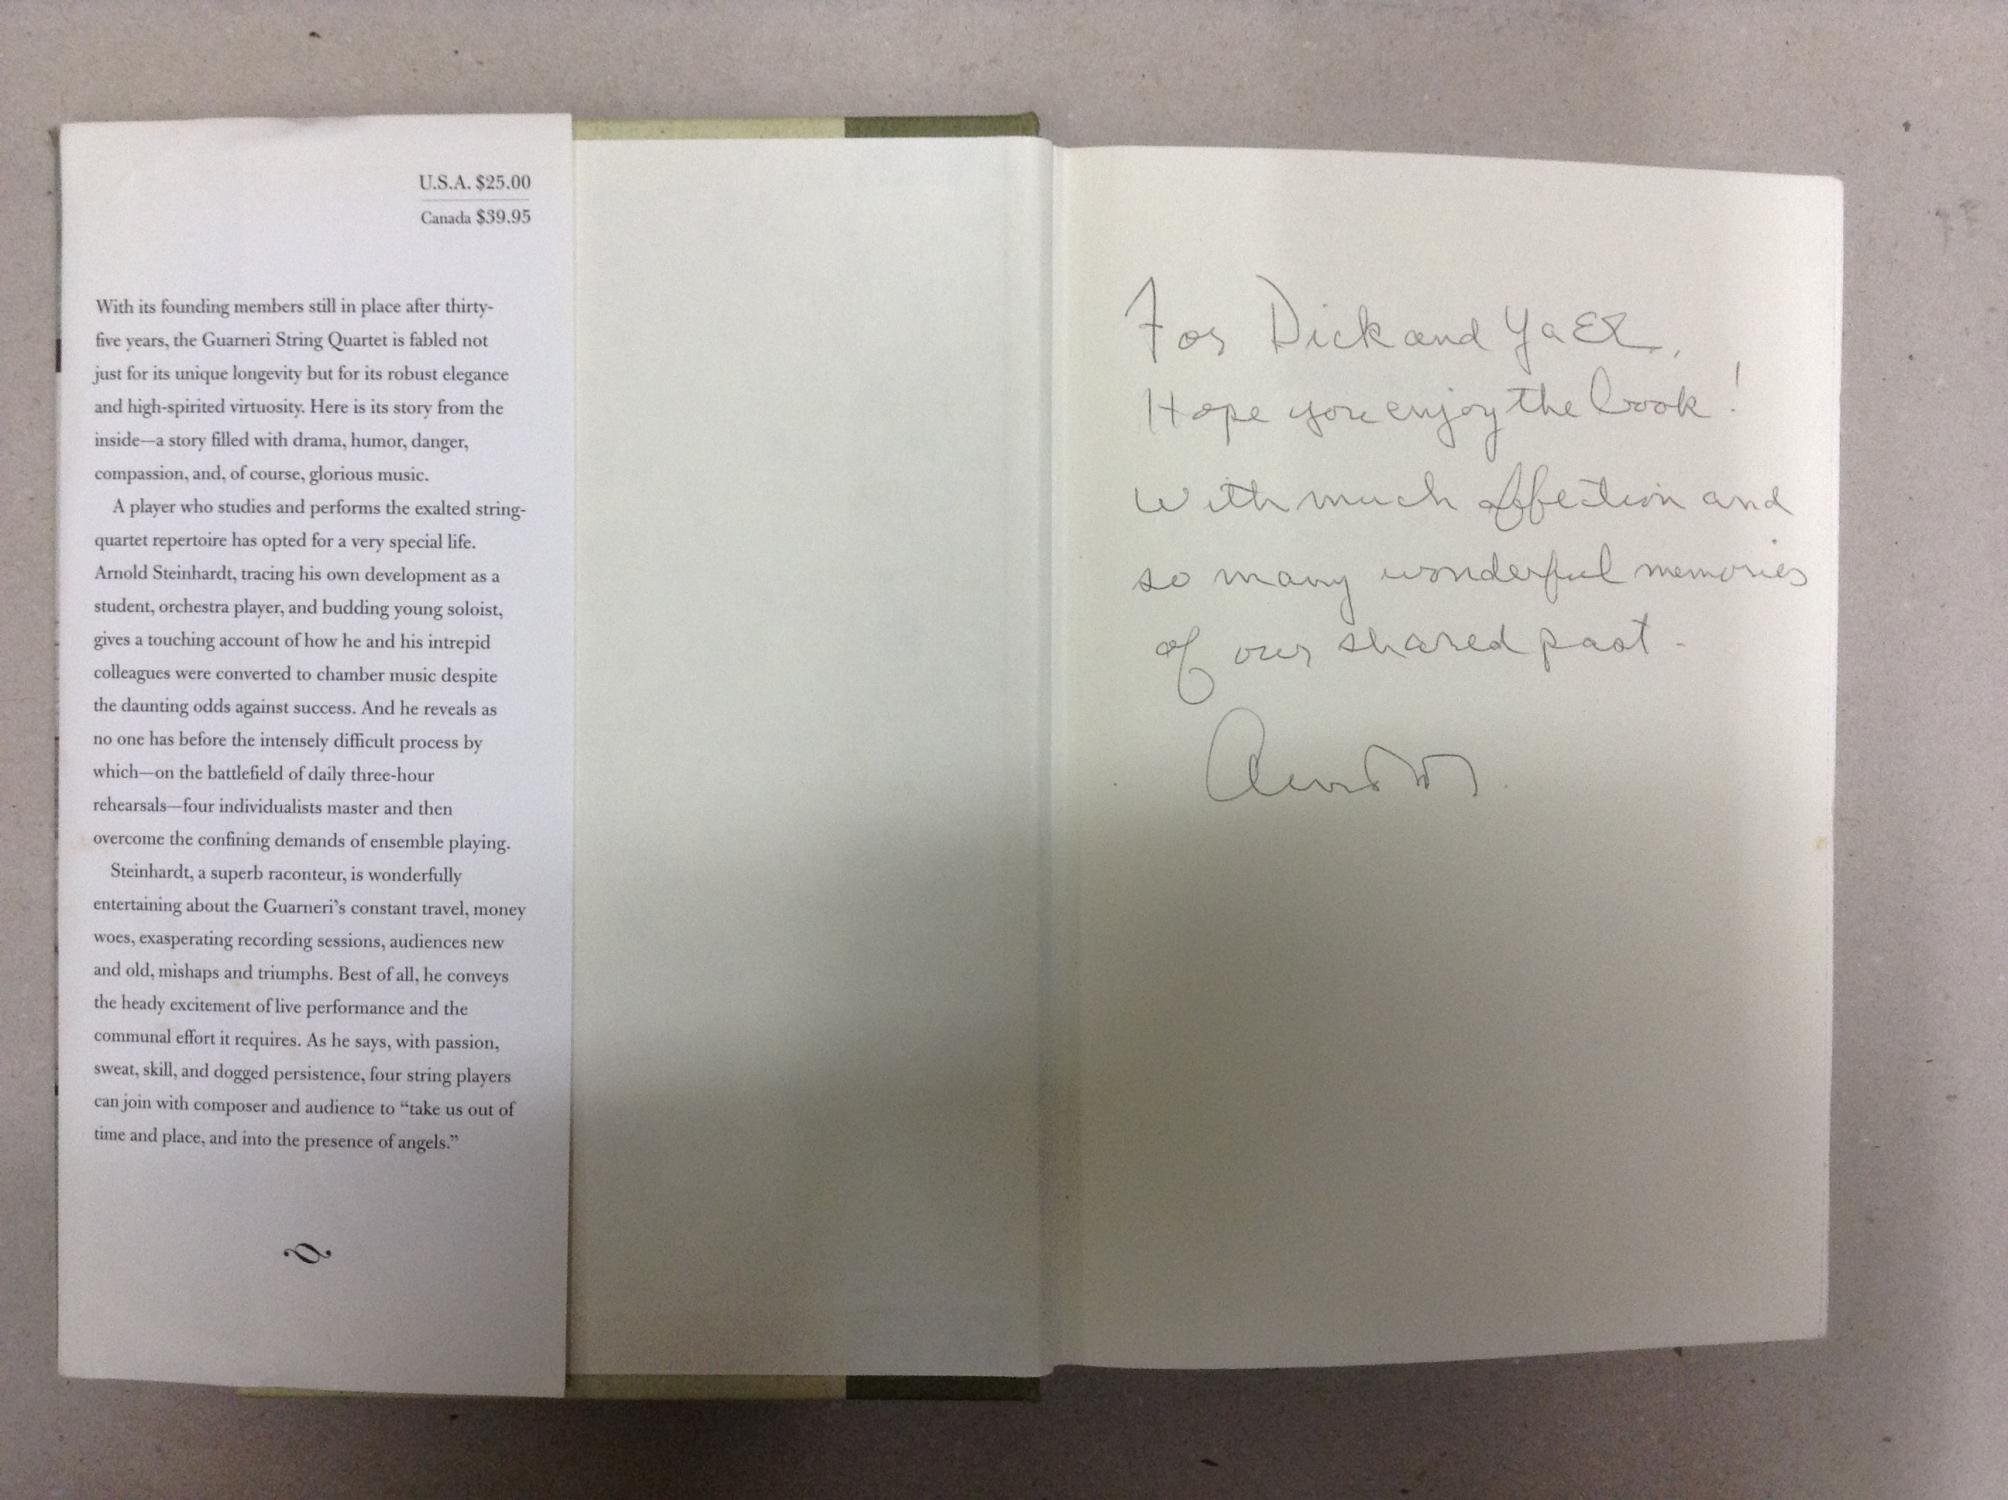 U.S.A. $25.00
Canada $39.95
With its founding members still in place after thirty-
five years, the Guarneri String Quartet is fabled not
just for its unique longevity but for its robust elegance
and high-spirited virtuosity. Here is its story from the
inside—a story filled with drama, humor, danger,
compassion, and, of course, glorious music.
A player who studies and performs the exalted string-
quartet repertoire has opted for a very special life.
Arnold Steinhardt, tracing his own development as a
student, orchestra player, and budding young soloist,
gives a touching account of how he and his intrepid
colleagues were converted to chamber music despite
the daunting odds against success. And he reveals as
no one has before the intensely difficult process by
which—on the battlefield of daily three-hour
rehearsals—four individualists master and then
overcome the confining demands of ensemble playing.
Steinhardt, a superb raconteur, is wonderfully
entertaining about the Guarneri's constant travel, money
woes, exasperating recording sessions, audiences new
and old, mishaps and triumphs. Best of all, he conveys
the heady excitement of live performance and the
communal effort it requires. As he says, with passion,
sweat, skill, and dogged persistence, four string players
can join with composer and audience to “take us out of
time and place, and into the presence of angels.”
For Dick and Yael,
Hope you enjoy the book!
With much affection and
so many wonderful memories
of our shared past -
Arnold